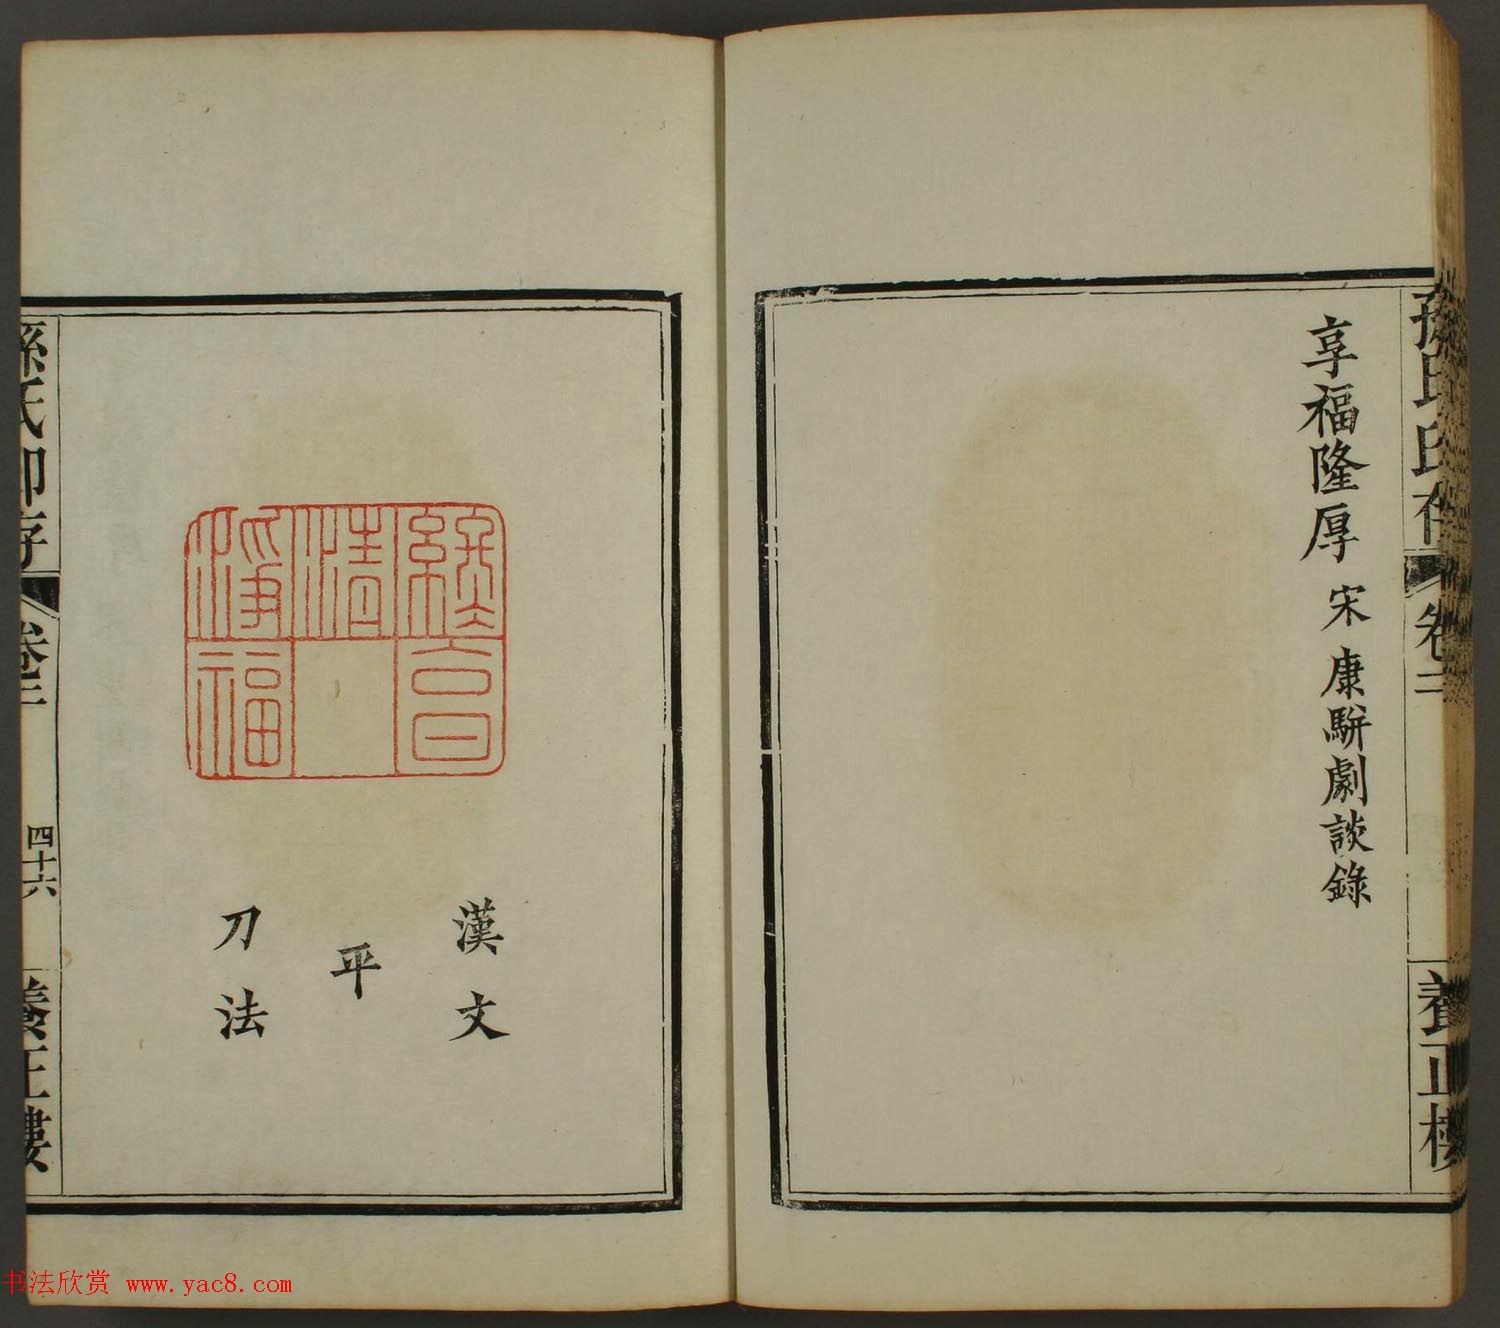 享福隆厚 宋 康駢劇談錄
孫氏印存
卷
養正樓
清
淨福
漢文
平
刀法
孫氏印存
卷
四十六
養正樓
书法欣赏 www.yac8.com